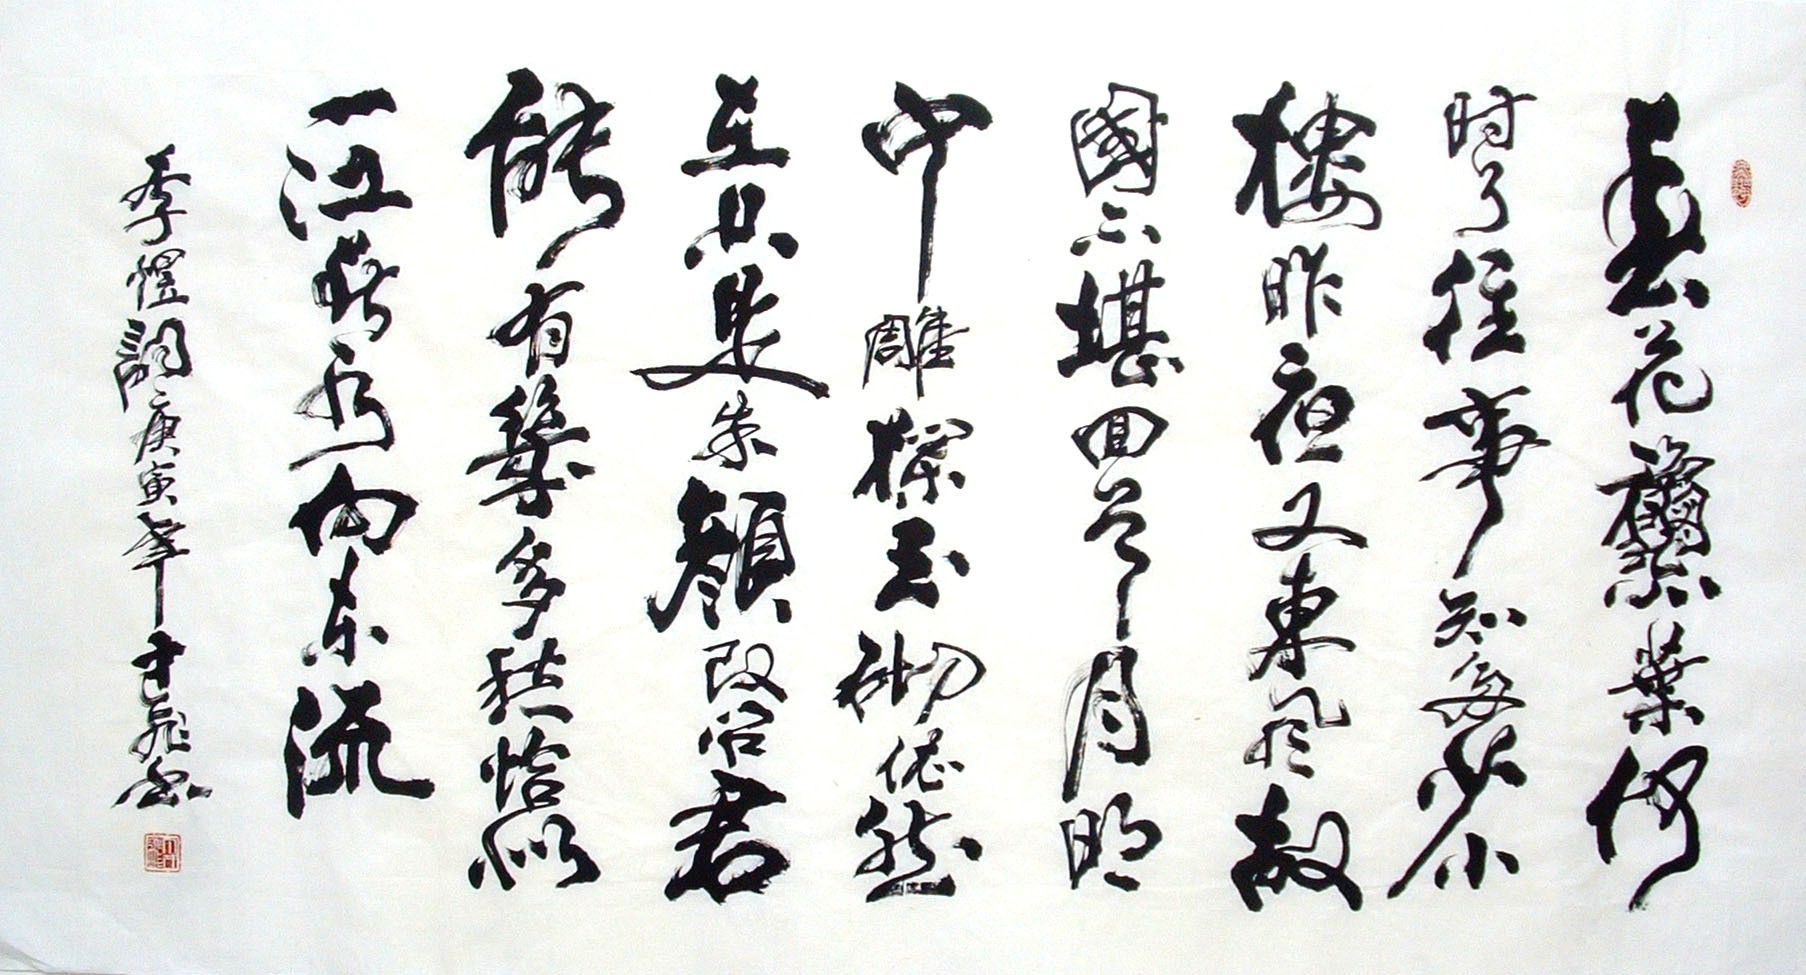 春花葉何
时了往事知多少小
樓昨夜又東风故
國不堪回首月明
中雕欄玉砌依然
在只是朱顔改问君
能有幾多愁恰似
一江春水向东流
李煜詞庚寅年飛书